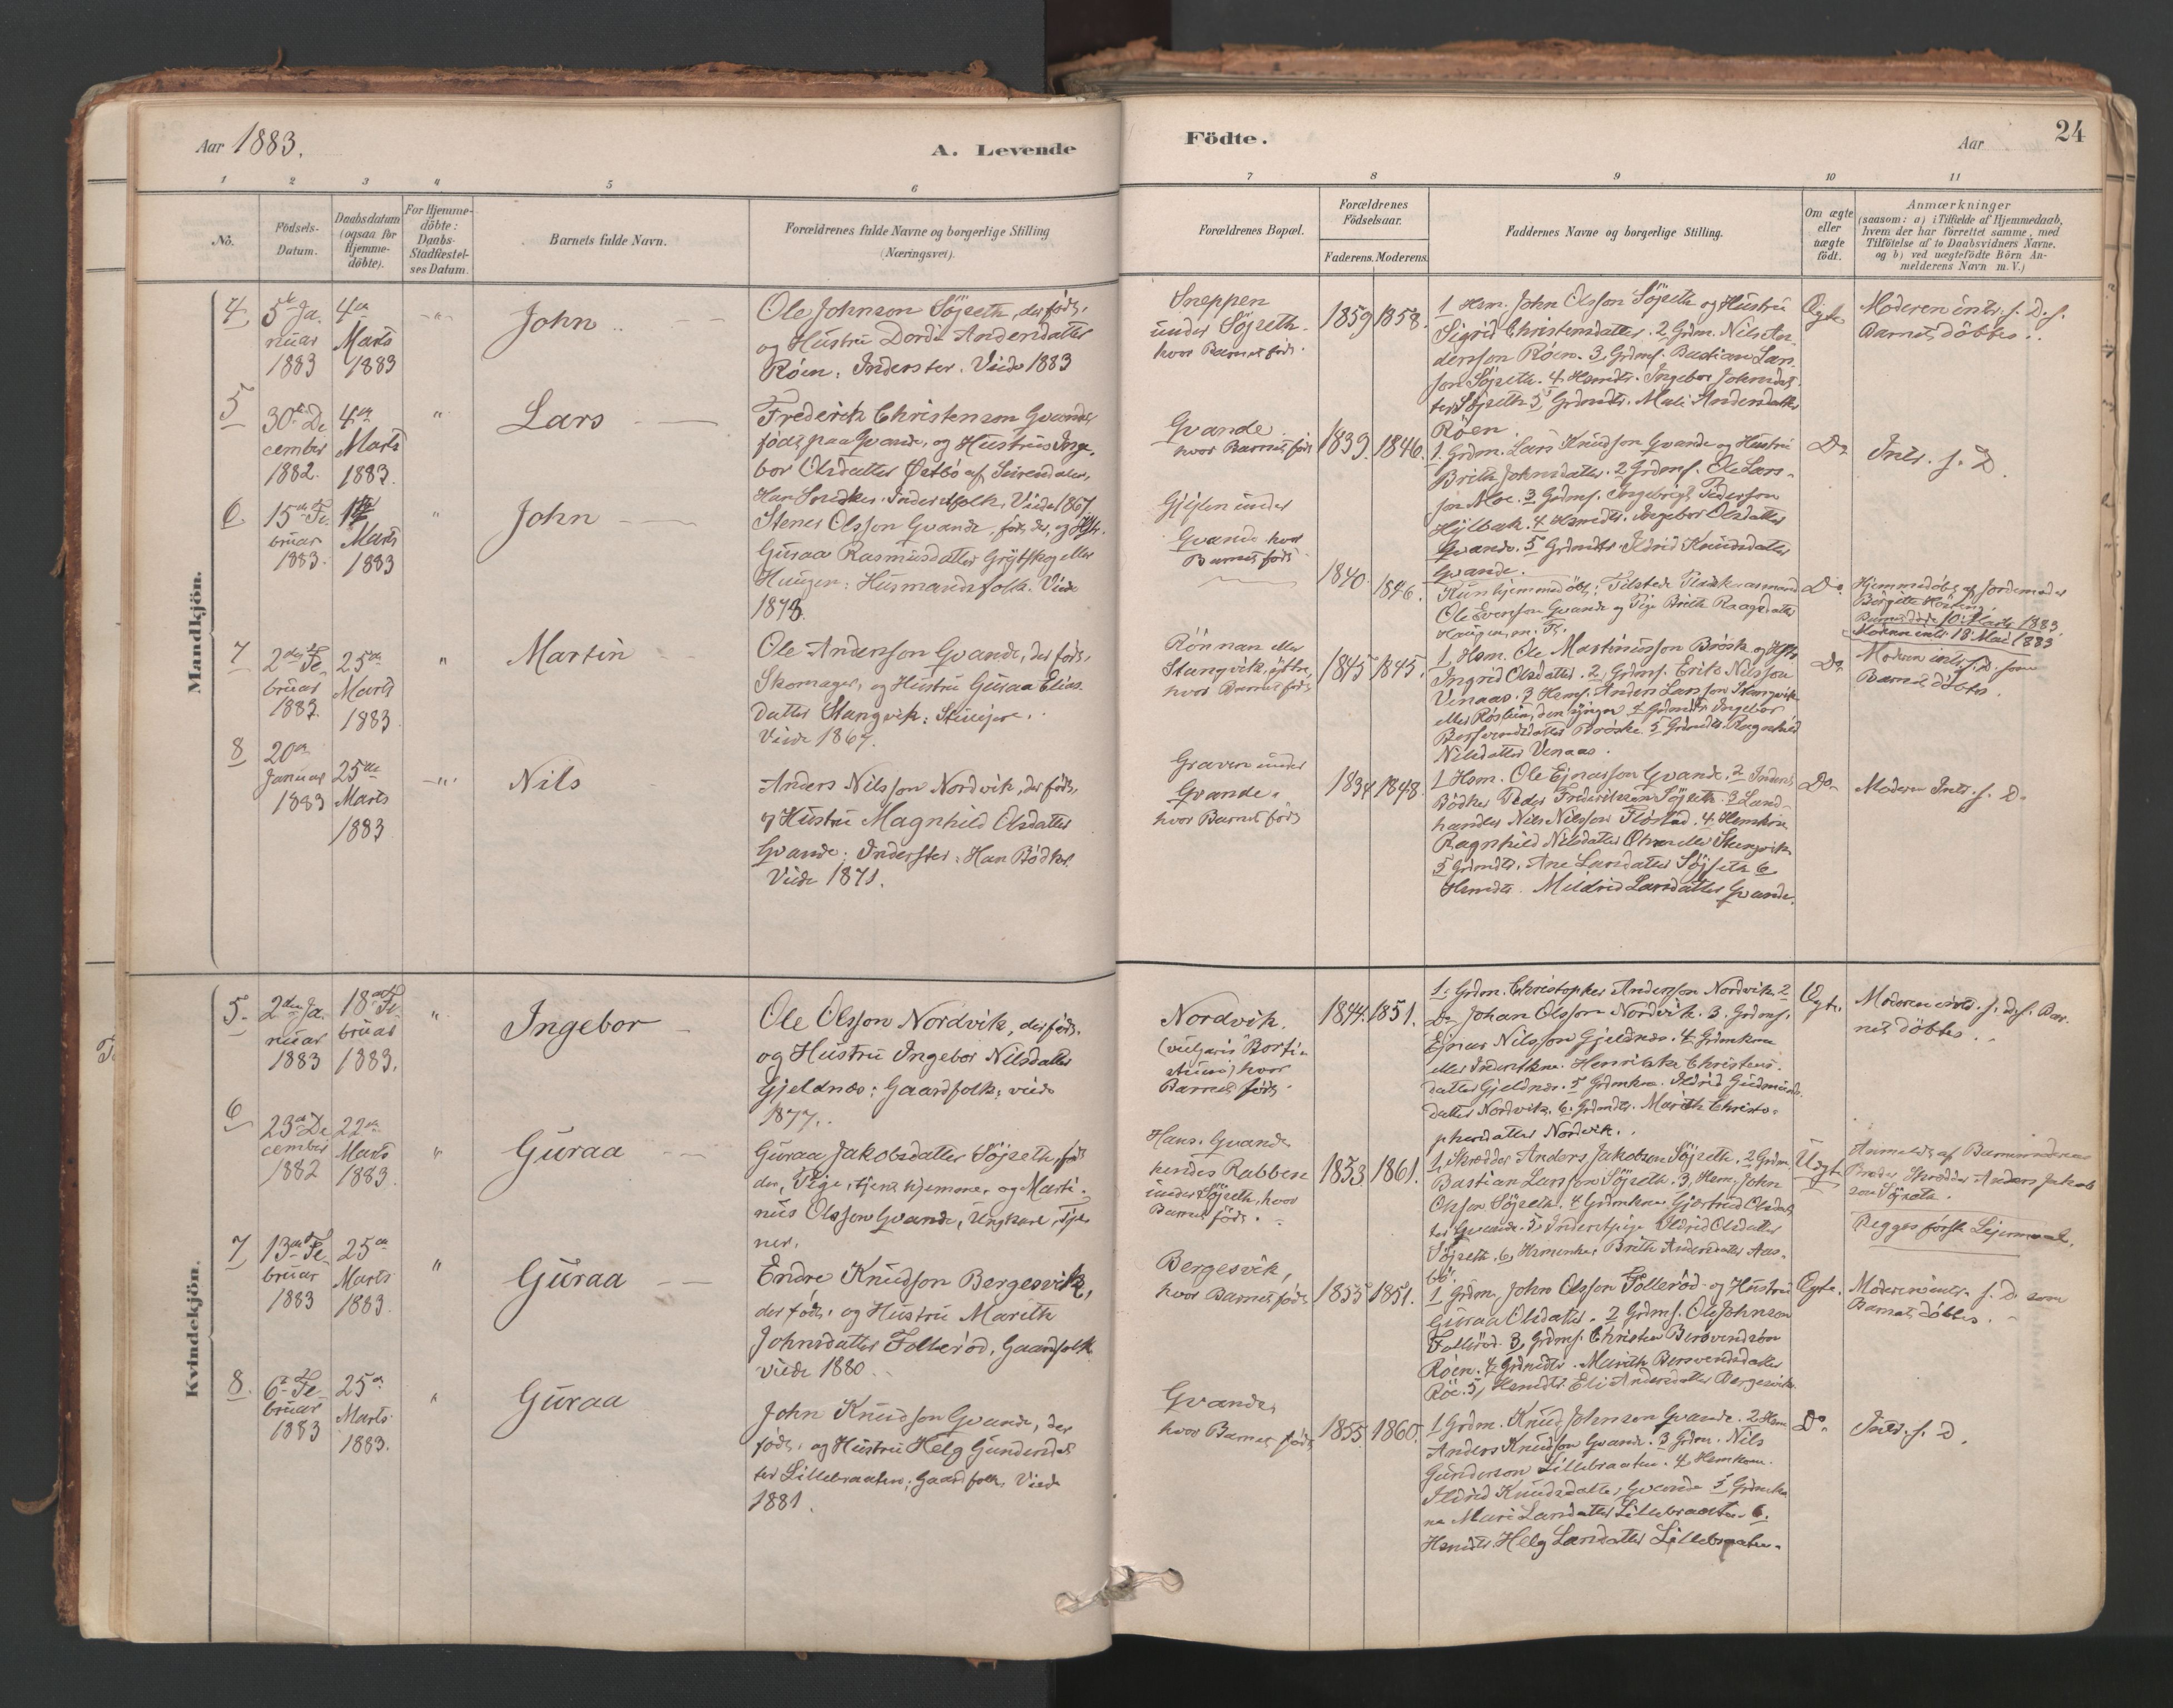 Aar 1883.
A. Levende
Födte.
Aar
24
1
2
3
4
5
6
7
8
9
10
11
No.
Födsels-
Datum.
Daabsdatum
(ogsaa for
Hjemme-
döbte).
For Hjemme-
döbte:
Daabs-
Stadfæstel-
ses Datum.
Barnets fulde Navn.
Forældrenes fulde Navne og borgerlige Stilling
(Næringsvei).
Forældrenes Bopæl.
Forældrenes
Födselsaar.
Faderens. Moderens.
Faddernes Navne og borgerlige Stilling.
Om ægte
eller
uægte
födt.
Anmærkninger
(saasom: a) i Tilfælde af Hjemmedaab,
hvem der har forrettet samme, med
Tilföielse af to Daabsvidners Navne.
og b) ved uægtefödte Börn An-
melderens Navn m. V.)
Mandkjön.
4
5te Ja-
nuar
1883
4de
Marts
1883
John
Ole Johnson Söjseth, der föd,
og Hustru Dordi Andersdatter
Röen, Inderster. Viede 1883
Sneppen
under Söjseth
hvor Barnet föd.
1859
1858.
1 Hsm. John Olsson Söjseth og Hustru
Sigrid Christensdatter. 2 Grdm. Nils An-
dersson Röen. 3 Grdms. Bastian Lars-
son Söjseth. 4 Hsmdtr. Ingebor Johnsdat-
ter Söjseth 5 Grdmdtr. Mali Andersdatter
Röen.
Ægte
Moderen intr. s. D. s.
Barnet döbtes.
5
30te De-
cember
1882.
4de
Marts
1883.
Lars
Frederik Christenson Gvande,
född paa Gvande, og Hustru Inge-
bor Olsdatter Østbö af Surendalen,
Han Snedker. Inderstfolk. Viede 1867
Gvande
hvor Barnet föd
1839.
1846.
1. Grdm. Lars Knudson Gvande og Hustru
Brith Johnsdatter. 2 Grdms. Ole Lars-
son Moe. 3 Grdms. Ingebrigt Pederson
Hylbak. 4 Hsmdtr. Ingebor Olsdatter
Gvande. 5 Grdmdtr. Ildrid Knudsdatter
Gvande.
Do
Intr. s. D.
6
15de Fe-
bruar
1883.
1ste
Marts
1883
John
Stener Olsson Gvande, föd der, og Hstr.
Guraa Rasmusdatter Grytskog eller
Haugen: Husmandsfolk. Viede
1873.
under
Gvande hvor
Barnet föd
1840.
1846.
Kun hjemmedöbt: Tilstede
Ole Evenson Gvande og Pige Brith
Do.
Hjemmedöbt af Jordemoder
Barnet döde 10. Marts 1883
Moderen intr. 18 Mai 1883
7
2den Fe-
bruar
1883.
25de
Marts
1883
Martin
Ole Anderson Gvande, der föd,
Skomager, og Hustru Guraa Elias-
datter Stangvik: Selvejere.
Viede 1869.
Rönnan eller
Stangvik, östre,
hvor Barnet föd
1845
1845.
1 Hsm. Ole Martinusson Brösk og Hstr.
Ingrid Olsdatter. 2 Grdms. Erik Nilsson
Venaas. 3 Hsms. Anders Larsson Stangvik
eller Röslien, den yngre 4 Grdmdtr. Ingebor
Bersvendsdatter Bröske. 5 Grdmdtr. Ragnhild
Nilsdatter Venaas.
Do.
Moderen intr. s. D. som
Barnet döbtes.
8
20de
Januar
1883
25de
Marts
1883
Nils
Anders Nilsson Nordvik, der föd,
og Hustru Magnhild Olsdatter
Gvande: Inderster: Han Bödker.
Viede 1871.
Graven under
Gvande.
hvor Barnet föd
1834
1848.
1 Hsm. Ole Ejnarsson Gvande. 2 Inderst,
Bödker Peder Frederikson Söjseth 3 Land-
handler Nils Nilsson Flöstad. 4 Hsmkone
Ragnhild Nilsdatter Stangvik
5 Grdmdtr. Ane Larsdatter Söjseth 6
Hsmdtr. Mildrid Larsdatter Gvande.
Do.
Moderen Intr. s. D.
Kvindekjön.
5.
2den Ja-
nuar
1883
18de Fe-
bruar
1883.
Ingebor
Ole Olsson Nordvik, der föd,
og Hustru Ingebor Nilsdatter
Gjeldnæs: Gaardfolk: viede
1877.
Nordvik.
hvor
Barnet föd.
1844.
1851.
1. Grdm. Christopher Andersson Nordvik. 2
Do Johan Olsson Nordvik. 3. Grdms.
Ejnar Nilsson Gjeldnæs. 4 Grdmkone
eller Inderstkone. Henrikke Christens-
datter Gjeldnæs. 5 Grdmkone. Ildrid Gudmunds-
datter Nordvik. 6. Grdmdtr. Marith Christo-
phersdatter Nordvik.
Ægte.
Moderen intr. s. D. s. Bar-
net döbtes.
6
23de De-
cember
1882
22de
Marts
1883.
Guraa
Guraa Jakobsdatter Söjseth, föd
der, Pige, tjener hjemme, og Marti-
nus Olsson Gvande, Ungkarl, Tje-
ner.
Hans: Gvande
hendes Rabben
under Söjseth, hvor
Barnet föd.
1853
1861.
1. Skrædder Anders Jakobson Söjseth. 2 Grdm.
Bastian Larsson Söjseth. 3. Hsm. John
Olsson Söjseth. 4 Grdmkone. Gjertrud Olsdat-
ter Gvande. 5 Inderstpige Ildrid Olsdatter
Söjseth. 6. Hsmenke. Brith Andersdatter Aas-
bö.
Uægte
Anmeldt af Barnemoderens
Broder, Skrædder Anders Jakob-
son Söjseth.
Begges förste Lejermaal.
7
13de Fe-
bruar
1883
25de
Marts
1883.
Guraa
Endre Knudson Bergesvik,
der föd, og Hustru Marith
Johnsdatter Folleröd. Gaardfolk
viede 1880
Bergesvik,
hvor Barnet föd
1853
1851.
1 Grdm. John Olsson Folleröd og Hustru
Guraa Olsdatter. 2 Grdms. Ole Johnson
Folleröd. 3. Grdms. Christen Bersvendson
Röen. 4 Grdmdtr. Marith Bersvendsdatter
Röe. 5, Hsmdtr. Eli Andersdatter Bergesvik.
Ægte.
Moderen intr. s. D. som
Barnet döbtes.
8.
6te Fe-
bruar
1883
25de
Marts
1883.
Guraa
John Knudson Gvande, der
föd, og Hustru Helg Gundersdat-
ter Lillebraaten: Gaardfolk, Viede
1881.
Gvande
hvor Barnet föd
1855.
1860.
1 Grdm. Knud Johnson Gvande. 2 Hsm.
Anders Knudson Gvande. 3 Grdm. Nils
Gunderson Lillebraaten. 4 Hsmkone.
Ildrid Knudsdatter Gvande 5 Grdmko-
ne Mari Larsdatter Lillebraaten. 6.
Hsmdtr. Helg Larsdatter Lillebraaten.
Do.
Intr. s. D.